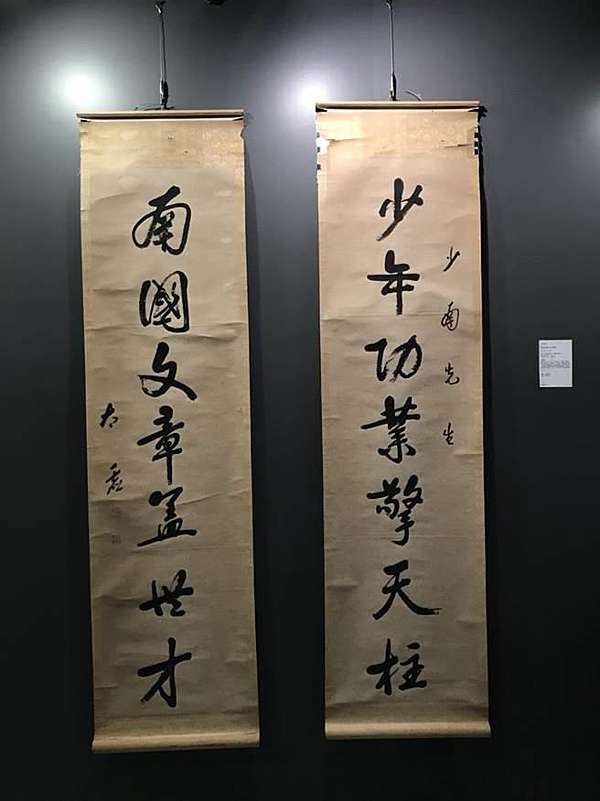 少年功業擎天柱
少南先生
南國文章蓋世才
太虛